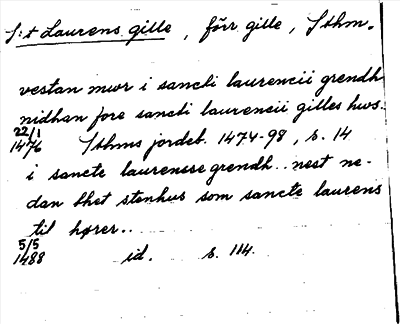 S:t Laurens gille, förr gille, Sthm.
vestan mwr i sancti laurencii grendh
nidhan fore sancti laurencii gilles hws.
22/1
1476 Sthms jordeb. 1474-98, s. 14
i sancte laurensse grendh.. nest ne-
dan thet stenhus som sancte laurens
til hører..
5/5
1488 id. s. 114.